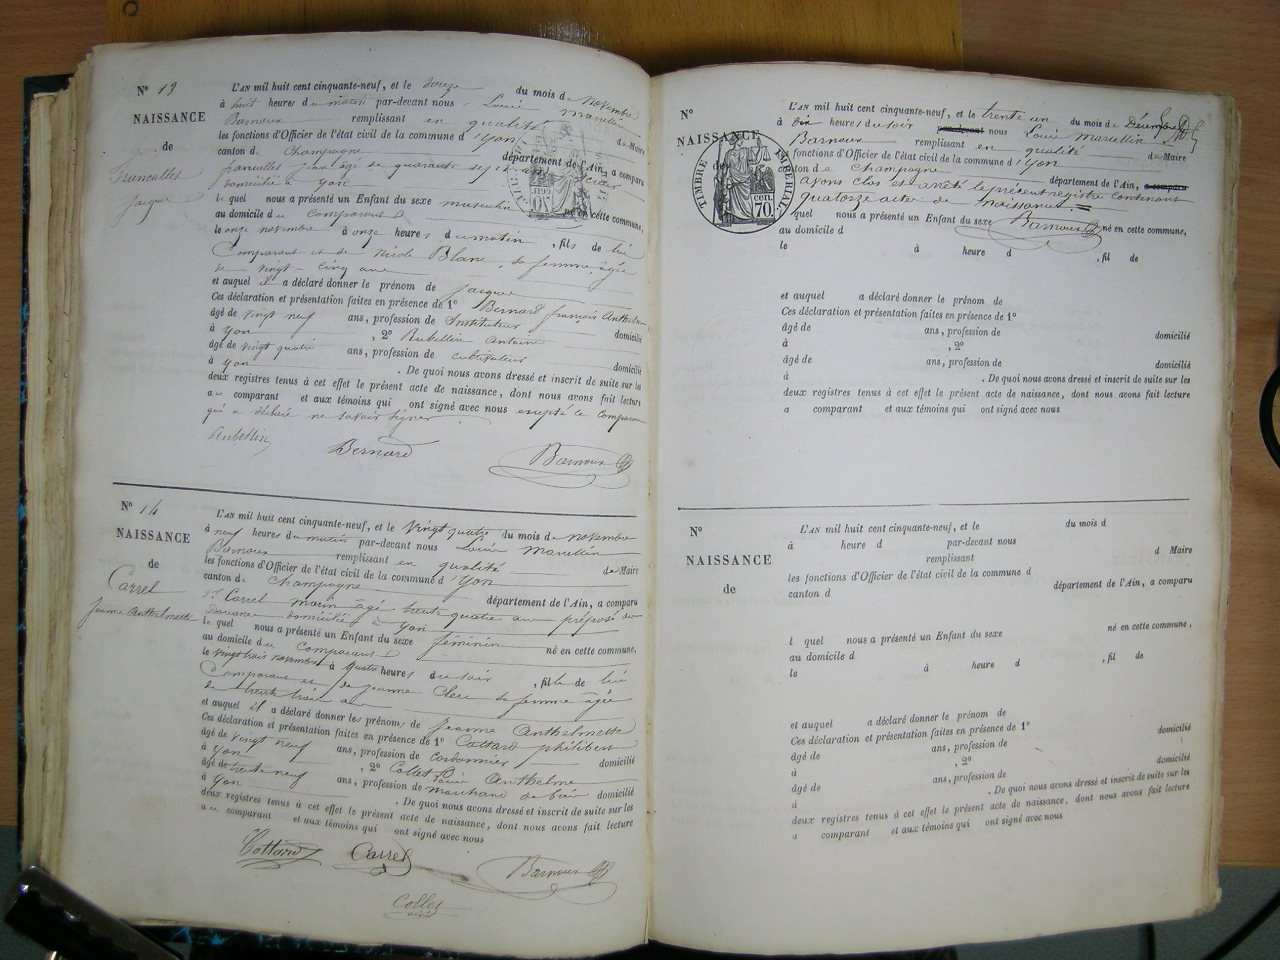 Nº 13
NAISSANCE
de
Francallet
Jacques
L'AN mil huit cent cinquante-neuf, et le douze du mois de Novembre
à huit heures du matin par-devant nous Louis Marcellin
Barnoux remplissant en qualité de Maire
les fonctions d'Officier de l'état civil de la commune d'Yon
canton de Champagne département de l'Ain, a comparu
âgé de quarante sept ans
domicilié à yon
le quel nous a présenté un Enfant du sexe masculin né en cette commune,
au domicile du comparant
le onze novembre à onze heures du matin, fils de lui
Comparant et de Blanc, sa femme, âgée
de vingt-cinq ans
et auquel il a déclaré donner le prénom de Jacques
Ces déclaration et présentation faites en présence de 1º Bernard françois Anthelme
âgé de vingt neuf ans, profession de Instituteur domicilié
à yon, 2º Rubellin Antoine
âgé de vingt quatre ans, profession de cultivateur domicilié
à yon. De quoi nous avons dressé et inscrit de suite sur les
deux registres tenus à cet effet le présent acte de naissance, dont nous avons fait lecture
au comparant et aux témoins qui ont signé avec nous excepté le Comparant
qui a déclaré ne savoir signer
Rubellin Bernard Barnoux
Nº 14
NAISSANCE
de
Carrel
Jeanne Anthelmette
L'AN mil huit cent cinquante-neuf, et le Vingt quatre du mois de novembre
à neuf heures du matin par-devant nous Louis Marcellin
Barnoux remplissant en qualité de Maire
les fonctions d'Officier de l'état civil de la commune d'Yon
canton de Champagne département de l'Ain, a comparu
Sr Carrel âgé trente quatre ans préposé des
Douanes domicilié à yon
le quel nous a présenté un Enfant du sexe féminin né en cette commune,
au domicile du comparant
le vingt trois novembre à quatre heures du soir, fille de lui
Comparant et de Jeanne Clerc sa femme âgée
de trente trois ans
et auquel il a déclaré donner les prénoms de Jeanne Anthelmette
Ces déclaration et présentation faites en présence de 1º Cottard philibert
âgé de vingt neuf ans, profession de Cordonnier domicilié
à yon, 2º Collet Louis Anthelme
âgé de trente neuf ans, profession de marchand de bois domicilié
à yon. De quoi nous avons dressé et inscrit de suite sur les
deux registres tenus à cet effet le présent acte de naissance, dont nous avons fait lecture
au comparant et aux témoins qui ont signé avec nous
Cottard Carrel Barnoux
Collet
Nº
NAISSANCE
de
TIMBRE IMPÉRIAL
70 CEN.
L'AN mil huit cent cinquante-neuf, et le trente un du mois de Décembre
à six heures du soir nous Louis Marcellin
Barnoux remplissant en qualité de Maire
les fonctions d'Officier de l'état civil de la commune d'Yon
canton de Champagne département de l'Ain, a comparu
avons clos et arrêté le présent registre contenant
quatorze actes de naissance
l quel nous a présenté un Enfant du sexe Barnoux né en cette commune,
au domicile d
le à heure d , fil de
et auquel a déclaré donner le prénom de
Ces déclaration et présentation faites en présence de 1º
âgé de ans, profession de domicilié
à , 2º
âgé de ans, profession de domicilié
à . De quoi nous avons dressé et inscrit de suite sur les
deux registres tenus à cet effet le présent acte de naissance, dont nous avons fait lecture
a comparant et aux témoins qui ont signé avec nous
Nº
NAISSANCE
de
L'AN mil huit cent cinquante-neuf, et le du mois d
à heure d par-devant nous
remplissant d Maire
les fonctions d'Officier de l'état civil de la commune d
canton d département de l'Ain, a comparu
l quel nous a présenté un Enfant du sexe né en cette commune,
au domicile d
le à heure d , fil de
et auquel a déclaré donner le prénom de
Ces déclaration et présentation faites en présence de 1º
âgé de ans, profession de domicilié
à , 2º
âgé de ans, profession de domicilié
à . De quoi nous avons dressé et inscrit de suite sur les
deux registres tenus à cet effet le présent acte de naissance, dont nous avons fait lecture
a comparant et aux témoins qui ont signé avec nous